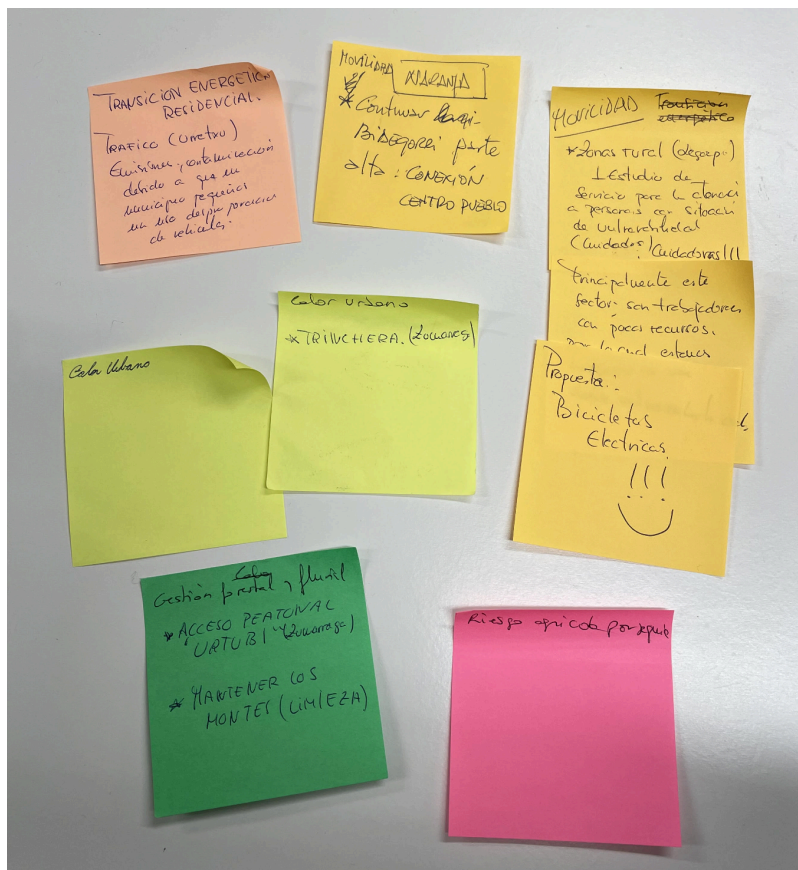 TRANSICION ENERGETICA
RESIDENCIAL.
TRAFICO (Urretxu)
Emisiones y contaminación
debido a que en
municipio pequeños
un uso desproporcion
de vehiculo.
MOVILIDAD NARANJA
* Continuar
BIDEGORRI parte
alta: CONEXIÓN
CENTRO PUEBLO
MOVILIDAD Transicion
energético
* Zonas rural
1 Estudio de
Servicio para la atenció
a personas con situación
de vulnerabilidad
(Cuidados/Cuidadoras!!!
Principalmente este
sector son trabajadores
con pocos recursos.
por lo cual
Propuesta:
Bicicletas
Electricas
!!!
Calor Urbano
Calor urbano
* TRINCHERA. (Zumarraga)
Gestión forestal y fluvial
* ACCESO PEATONAL
URTUBI (Zumarraga)
* MANTENER LOS
MONTES (LIMIEZA)
Riesgo agricola por sequia